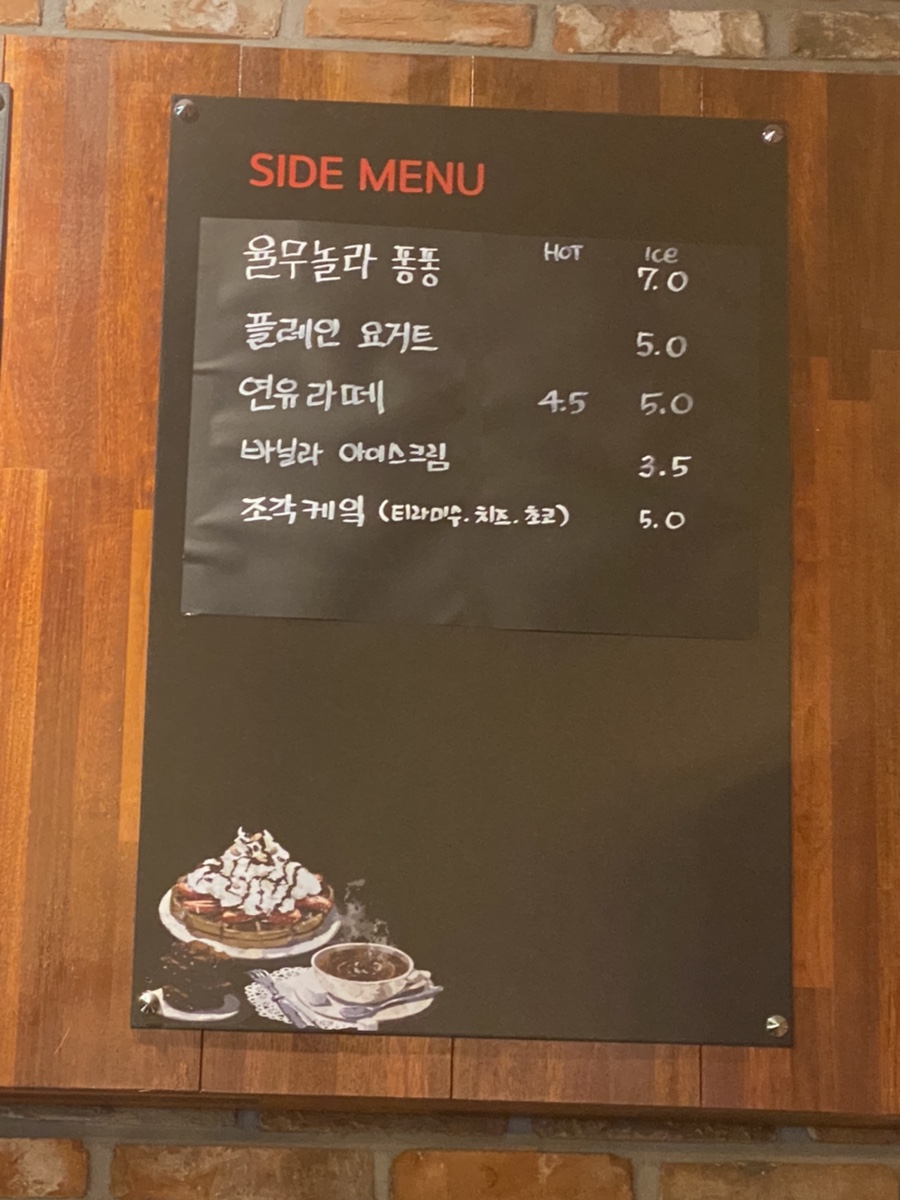 SIDE MENU
HOT ICe
율무놀라 퐁퐁 7.0
플레인 요거트 5.0
연유라떼 4.5 5.0
바닐라 아이스크림 3.5
조각케익 (티라미수.치즈.초코) 5.0